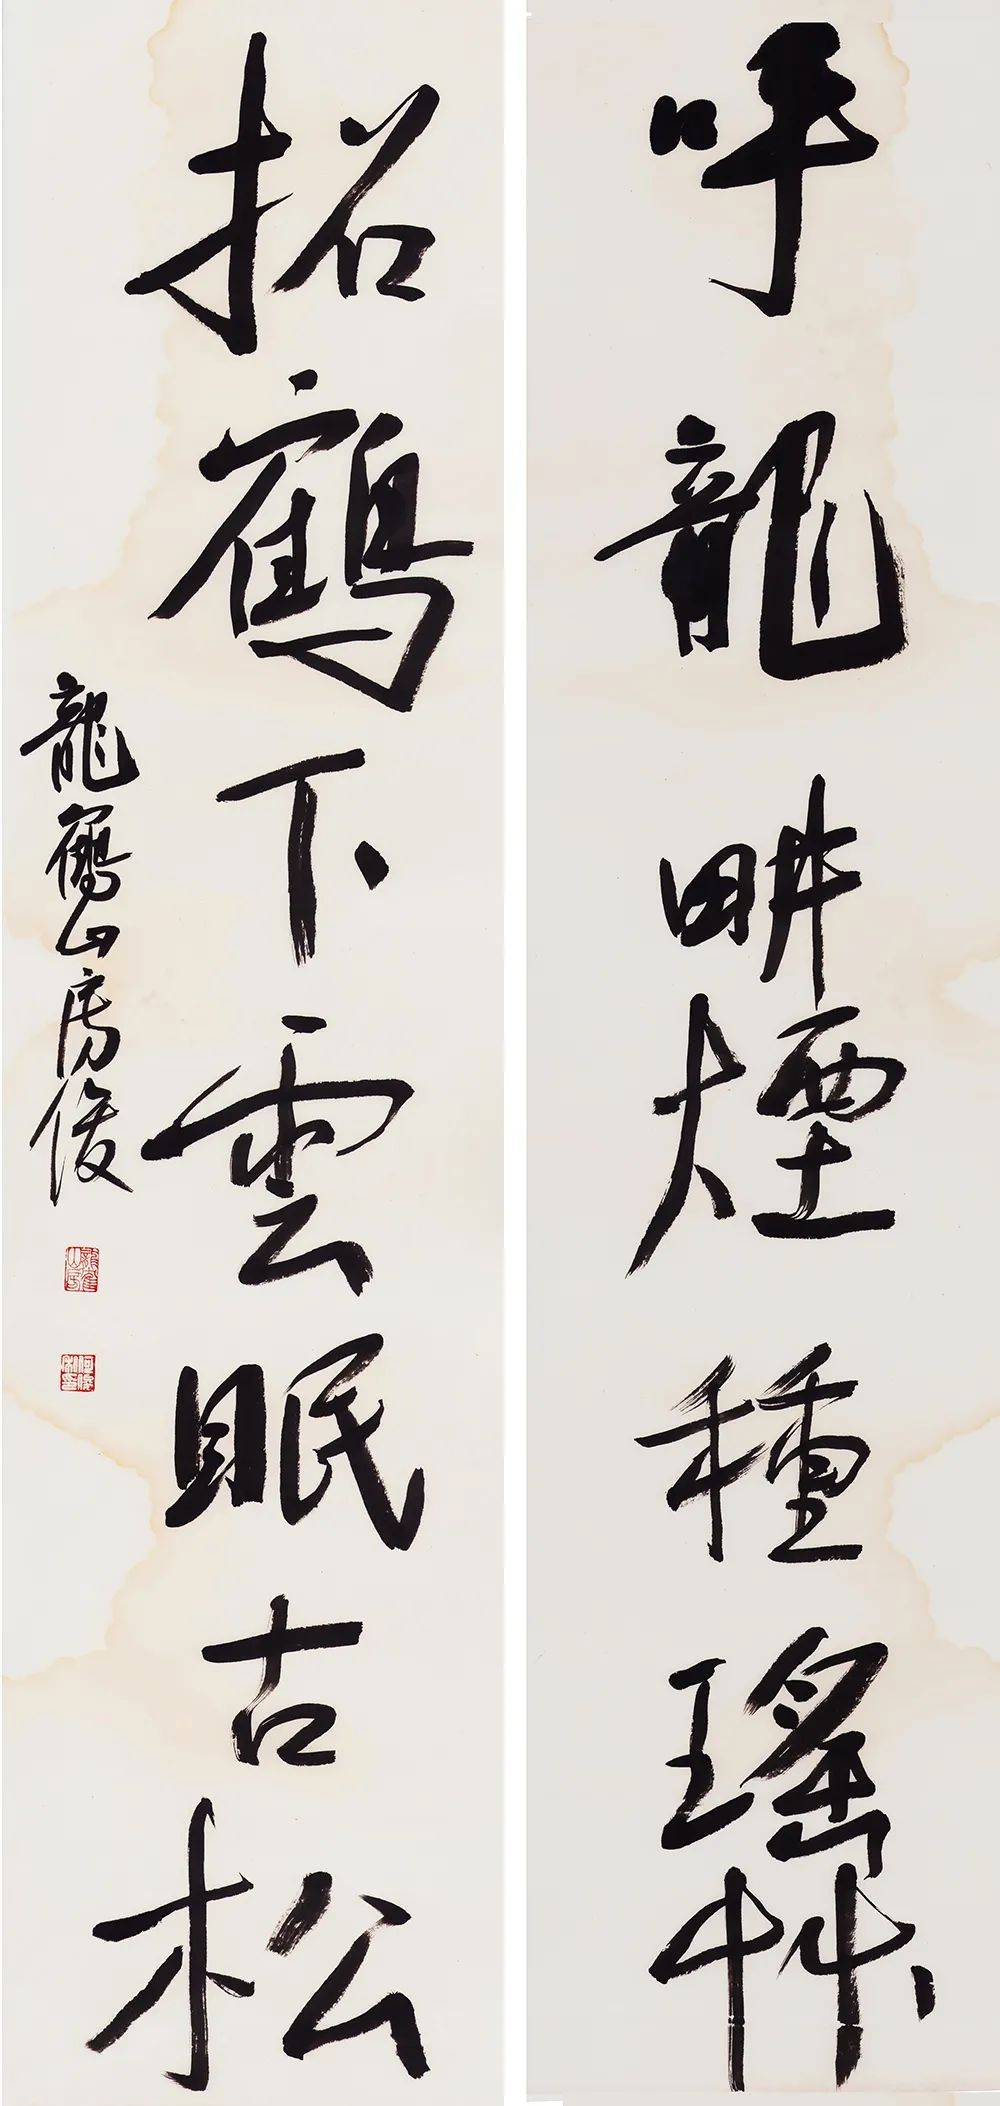 呼龍畊煙種瑤艸
招鶴下雲眠古松
龍鶴山房俊